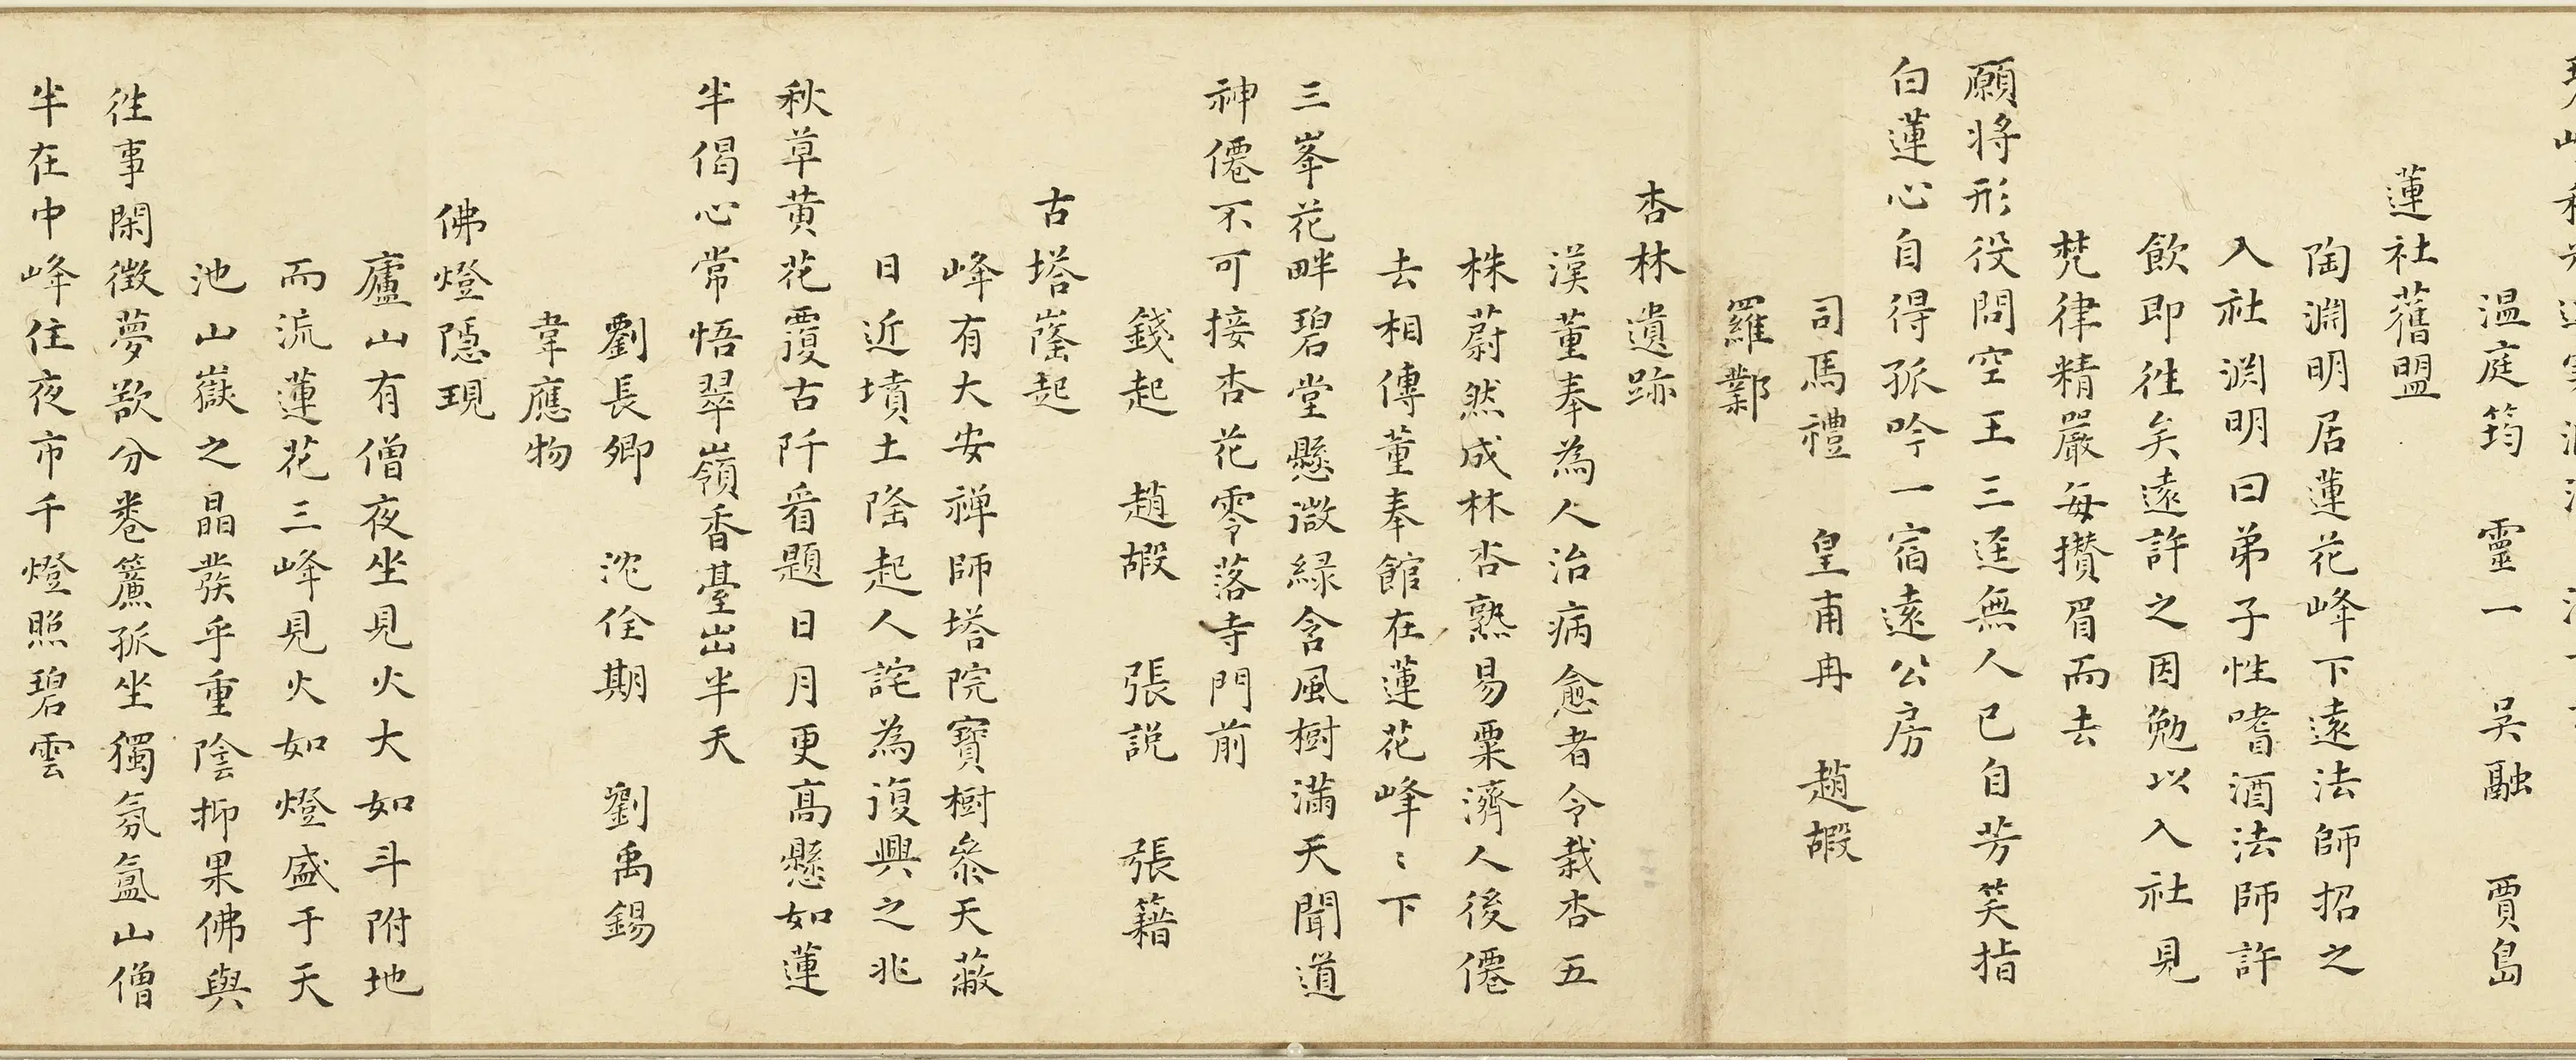 温庭筠　靈一　吳融　賈島
蓮社舊盟
陶淵明居蓮花峰下遠法師招之
入社淵明曰弟子性嗜酒法師許
飲即徃矣遠許之因勉以入社見
梵律精嚴每攢眉而去
願將形役問空王三逕無人已自芳笑指
白蓮心自得孤吟一宿遠公房
司馬禮　皇甫冉　趙嘏
羅鄴
杏林遺跡
漢董奉為人治病愈者令栽杏五
株蔚然成林杏熟易粟濟人後僊
去相傳董奉館在蓮花峰〻下
三峯花畔碧堂懸微緑含風樹滿天聞道
神僊不可接杏花零落寺門前
錢起　趙嘏　張説　張籍
古塔窿起
峰有大安禅師塔院寶樹叅天蔽
日近墳土隆起人詫為復興之兆
秋草黄花覆古阡看題日月更高懸如蓮
半偈心常悟翠嶺香臺出半天
劉長卿　沈佺期　劉禹錫
韋應物
佛燈隱現
廬山有僧夜坐見火大如斗附地
而流蓮花三峰見火如燈盛于天
池山嶽之晶發乎重陰抑果佛與
徃事閑徵夢欲分卷簾孤坐獨氛氲山僧
半在中峰住夜市千燈照碧雲